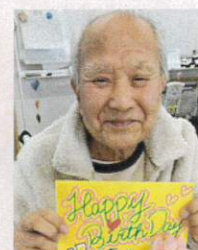 Happy
BirthDay